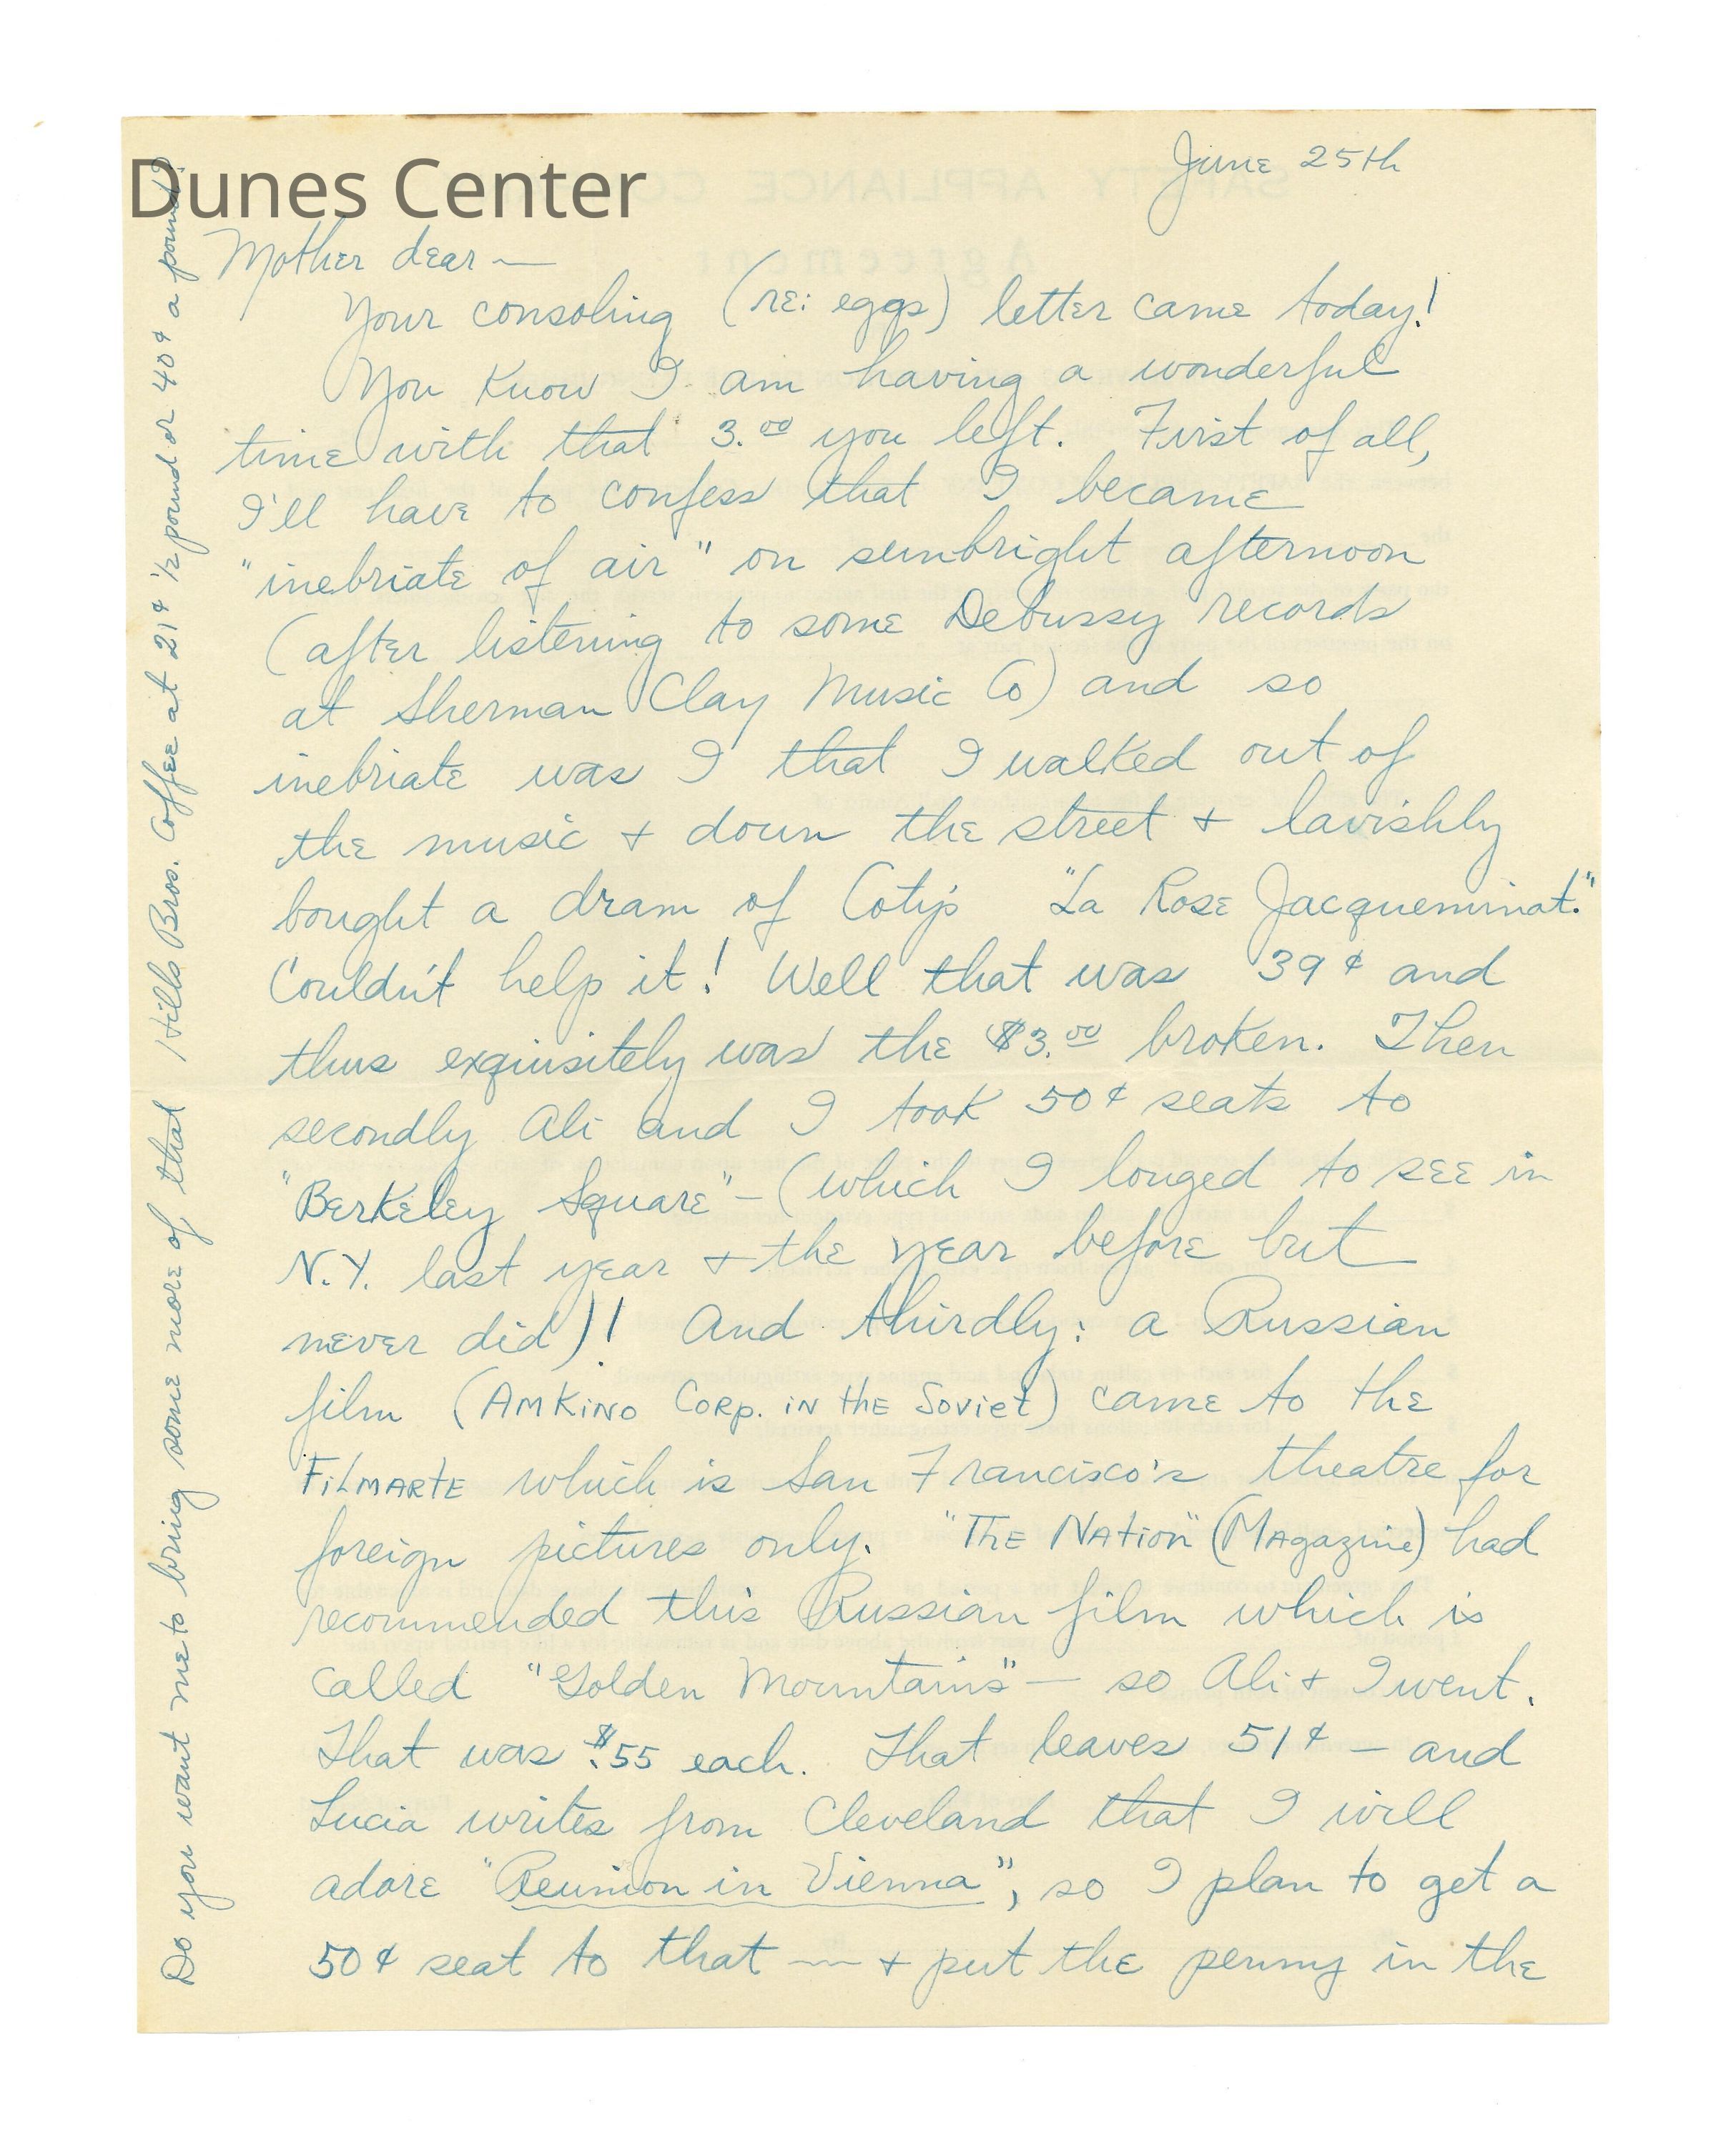 Dunes Center
June 25th
Mother dear —
Your consoling (re: eggs) letter came today!
You know I am having a wonderful
time with that 3.00 you left. First of all,
I'll have to confess that I became
"inebriate of air" on sunbright afternoon
(after listening to some Debussy records
at Sherman Clay Music Co) and so
inebriate was I that I walked out of
the music + down the street + lavishly
bought a dram of Coty's "La Rose Jacqueminat."
Couldn't help it! Well that was 39¢ and
thus exquisitely was the $3.00 broken. Then
secondly Ali and I took 50¢ seats to
"Berkeley Square" – (which I longed to see in
N.Y. last year + the year before but
never did)! And thirdly: a Russian
film (AMKINO Corp. in the Soviet) came to the
FILMARTE which is San Francisco's theatre for
foreign pictures only. "The Nation" (Magazine) had
recommended this Russian film which is
called "Golden Mountains" — so Ali + I went.
That was $.55 each. That leaves 51¢ – and
Lucia writes from Cleveland that I will
adore "Reunion in Vienna", so I plan to get a
50¢ seat to that — + put the penny in the
Do you want me to bring some more of that Hills Bros. Coffee at 21¢ 1/2 pound or 40¢ a pound?